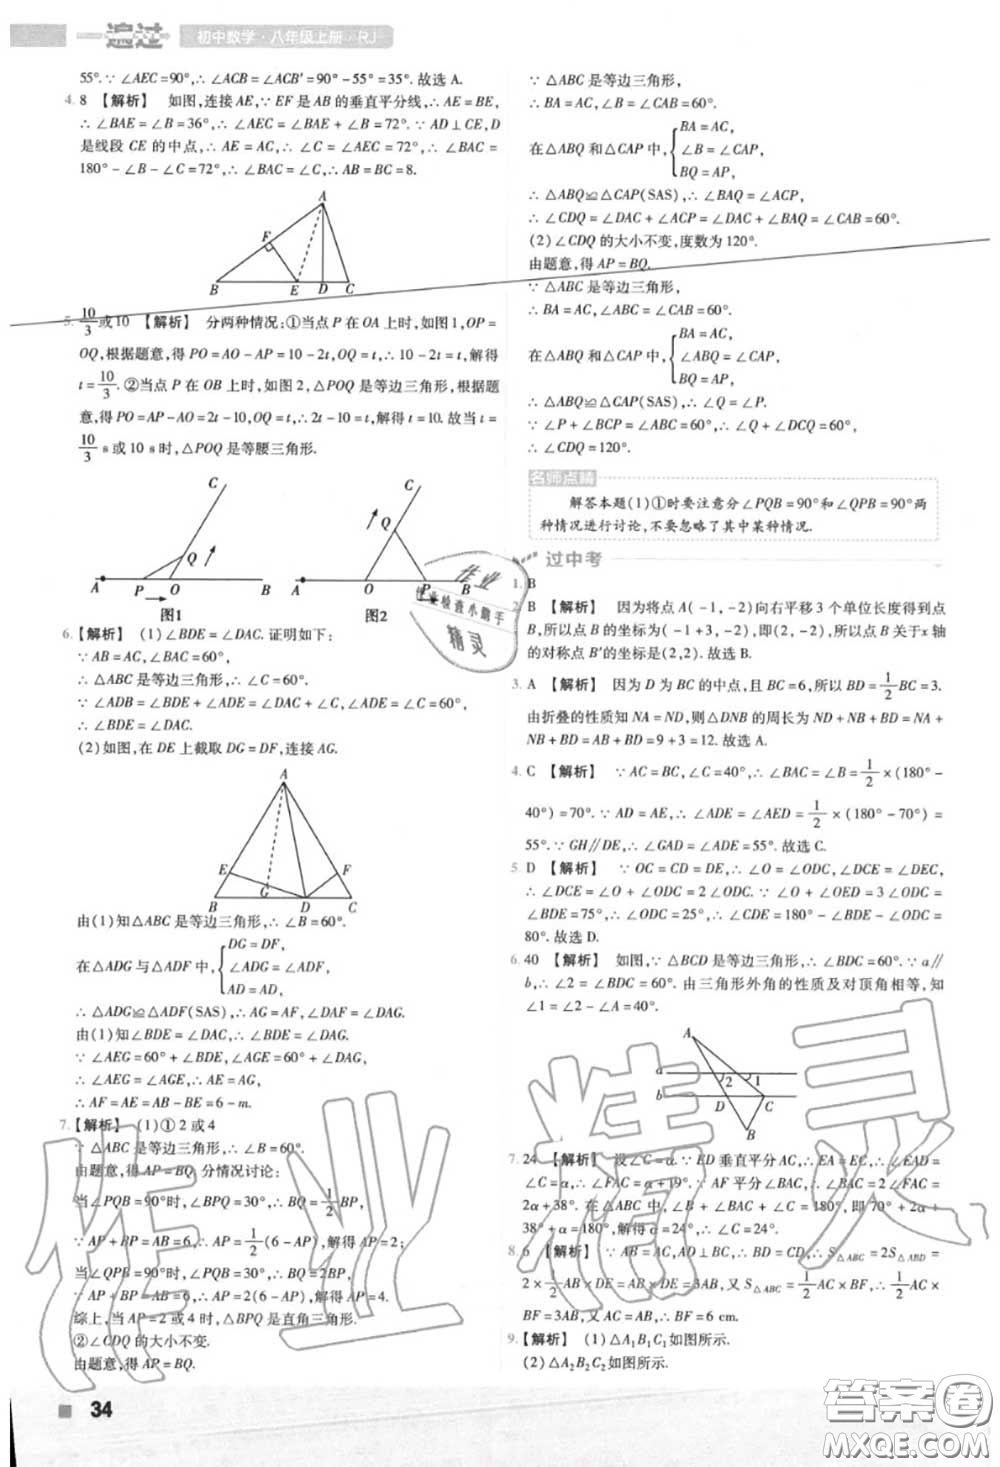 一遍过 初中数学·八年级上册 RJ
55°.∵∠AEC=90°,∴∠ACB=∠ACB′=90°-55°=35°.故选A.
4. 8 【解析】 如图,连接AE,∵EF是AB的垂直平分线,∴AE=BE,
∴∠BAE=∠B=36°,∴∠AEC=∠BAE+∠B=72°.∵AD⊥CE,D
是线段CE的中点,∴AE=AC,∴∠C=∠AEC=72°,∴∠BAC=
180°-∠B-∠C=72°,∴∠BAC=∠C,∴BC=8.
A
F
B E D C
5. 10/3或10 【解析】 分两种情况:①当点P在OA上时,如图1,OP=
OQ,根据题意,得PO=AO-AP=10-2t,OQ=t,∴10-2t=t,解得
t=10/3.②当点P在OB上时,如图2,△POQ是等边三角形,根据题
意,得PO=AP-AO=2t-10,OQ=t,∴2t-10=t,解得t=10.故当t=
10/3 s或10 s时,△POQ是等腰三角形.
C
Q
A P O B
图1
C
Q
A O P B
图2
6.【解析】 (1)∠BDE=∠DAC.证明如下:
∵AB=AC,∠BAC=60°,
∴△ABC是等边三角形,
∴∠C=60°.
∵∠ADB=∠BDE+∠ADE=∠DAC+∠C,∠ADE=60°,
∴∠BDE=∠DAC.
(2)如图,在DE上截取DG=DF,连接AG.
A
E F
G
B D C
由(1)知△ABC是等边三角形,∴∠B=60°.
在△ADG与△ADF中,{DG=DF,
AD=AD,
∴△ADG≌△ADF(SAS),∴AG=AF,∠DAF=∠DAG.
由(1)知∠BDE=∠DAC,∴∠BDE=∠DAG.
∵∠AEG=60°+∠BDE,∠AGE=60°+∠DAG,
∴∠AEG=∠AGE,∴AE=AG,
∴AF=AE=AB-BE=6-m.
7.【解析】 (1)①2或4
∵△ABC是等边三角形,∴∠B=60°.
由题意,得AP=BQ.分情况讨论:
当∠PQB=90°时,∠BPQ=30°,∴BQ=1/2BP,
∵AP+BP=AB=6,∴AP=1/2(6-AP),解得AP=2;
当∠QPB=90°时,∠BQP=30°,∴BQ=2BP,
∵AP+BP=AB=6,∴AP=2(6-AP),解得AP=4.
综上,当AP=2或4时,△BPQ是直角三角形.
②∠CDQ的大小不变.
由题意,得AP=BQ.
∵△ABC是等边三角形,
∴BA=AC,∠B=∠CAB=60°.
在△ABQ和△CAP中,{BA=AC,
∠B=∠CAP,
BQ=AP,
∴△ABQ≌△CAP(SAS),∴∠BAQ=∠ACP,
∴∠CDQ=∠DAC+∠ACP=∠DAC+∠BAQ=∠CAB=60°.
(2)∠CDQ的大小不变,度数为120°.
由题意,得AP=BQ.
∵△ABC是等边三角形,
∴BA=AC,∠ABC=∠BAC=60°,
在△ABQ和△CAP中,{BA=AC,
∠ABQ=∠CAP,
BQ=AP,
∴△ABQ≌△CAP(SAS),∴∠Q=∠P.
∵∠P+∠BCP=∠ABC=60°,∴∠Q+∠DCQ=60°,
∴∠CDQ=120°.
名师点睛
解答本题(1)①时要注意分∠PQB=90°和∠QPB=90°两
种情况进行讨论,不要忽略了其中某种情况.
过中考
1. B
2. B 【解析】 因为将点A(-1,-2)向右平移3个单位长度得到点
B,所以点B的坐标为(-1+3,-2),即(2,-2),所以点B关于x轴
的对称点B′的坐标是(2,2).故选B.
3. A 【解析】 因为D为BC的中点,且BC=6,所以BD=1/2BC=3.
由折叠的性质知NA=ND,则△DNB的周长为ND+NB+BD=NA+
NB+BD=AB+BD=9+3=12.故选A.
4. C 【解析】 ∵AC=BC,∠C=40°,∴∠BAC=∠B=1/2×(180°-
40°)=70°.∵AD=AE,∴∠ADE=∠AED=1/2×(180°-70°)=
55°.∵GH∥DE,∴∠GAD=∠ADE=55°.故选C.
5. D 【解析】 ∵OC=CD=DE,∴∠O=∠ODC,∠DCE=∠DEC,
∴∠DCE=∠O+∠ODC=2∠ODC.∵∠O+∠OED=3∠ODC=
∠BDE=75°,∴∠ODC=25°,∴∠CDE=180°-∠BDE-∠ODC=
80°.故选D.
6. 40 【解析】 如图,∵△BCD是等边三角形,∴∠BDC=60°.∵a∥
b,∴∠2=∠BDC=60°.由三角形外角的性质及对顶角相等,知
∠1=∠2-∠A=40°.
A
a 2 1
b D C
B
7. 24 【解析】 设∠C=α.∵ED垂直平分AC,∴EA=EC,∴∠EAD=
∠C=α,∴∠FAC=α+19°.∵AF平分∠BAC,∴∠BAC=2∠FAC=
2α+38°.在△ABC中,∠B+∠BAC+∠C=180°,即70°+2α+
38°+α=180°,解得α=24°,∴∠C=24°.
8. 6 【解析】 ∵AB=AC,AD⊥BC,∴BD=CD,∴S△ABC=2S△ABD=
2×1/2AB×DE=AB×DE=3AB,又S△ABC=1/2AC×BF,∴1/2AC×
BF=3AB,又AC=AB,∴BF=6 cm.
9.【解析】 (1)△A₁B₁C₁如图所示.
(2)△A₂B₂C₂如图所示.
34
作业
作业检查小帮手
精灵
作业精灵
答案圈
MXQE.COM